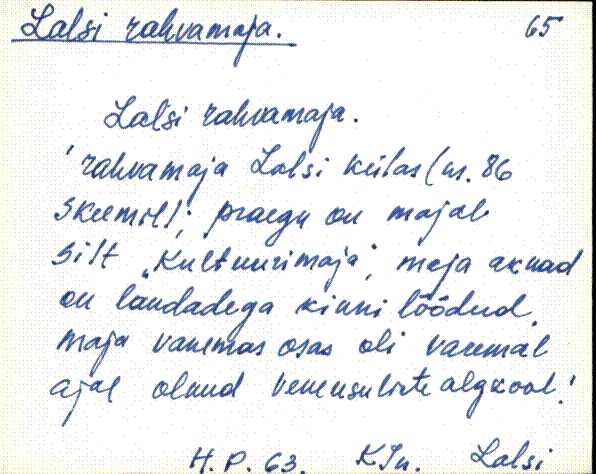 Lalsi rahvamaja. 65
Lalsi rahvamaja.
'rahvamaja Lalsi külas (nr. 86
skeemil); praegu on majal
silt „Kultuurimaja", maja aknad
on laudadega kinni löödud.
maja vanemas osas oli varemal
ajal olnud veneusuliste algkool.'
H.P. 63. KJn. Lalsi